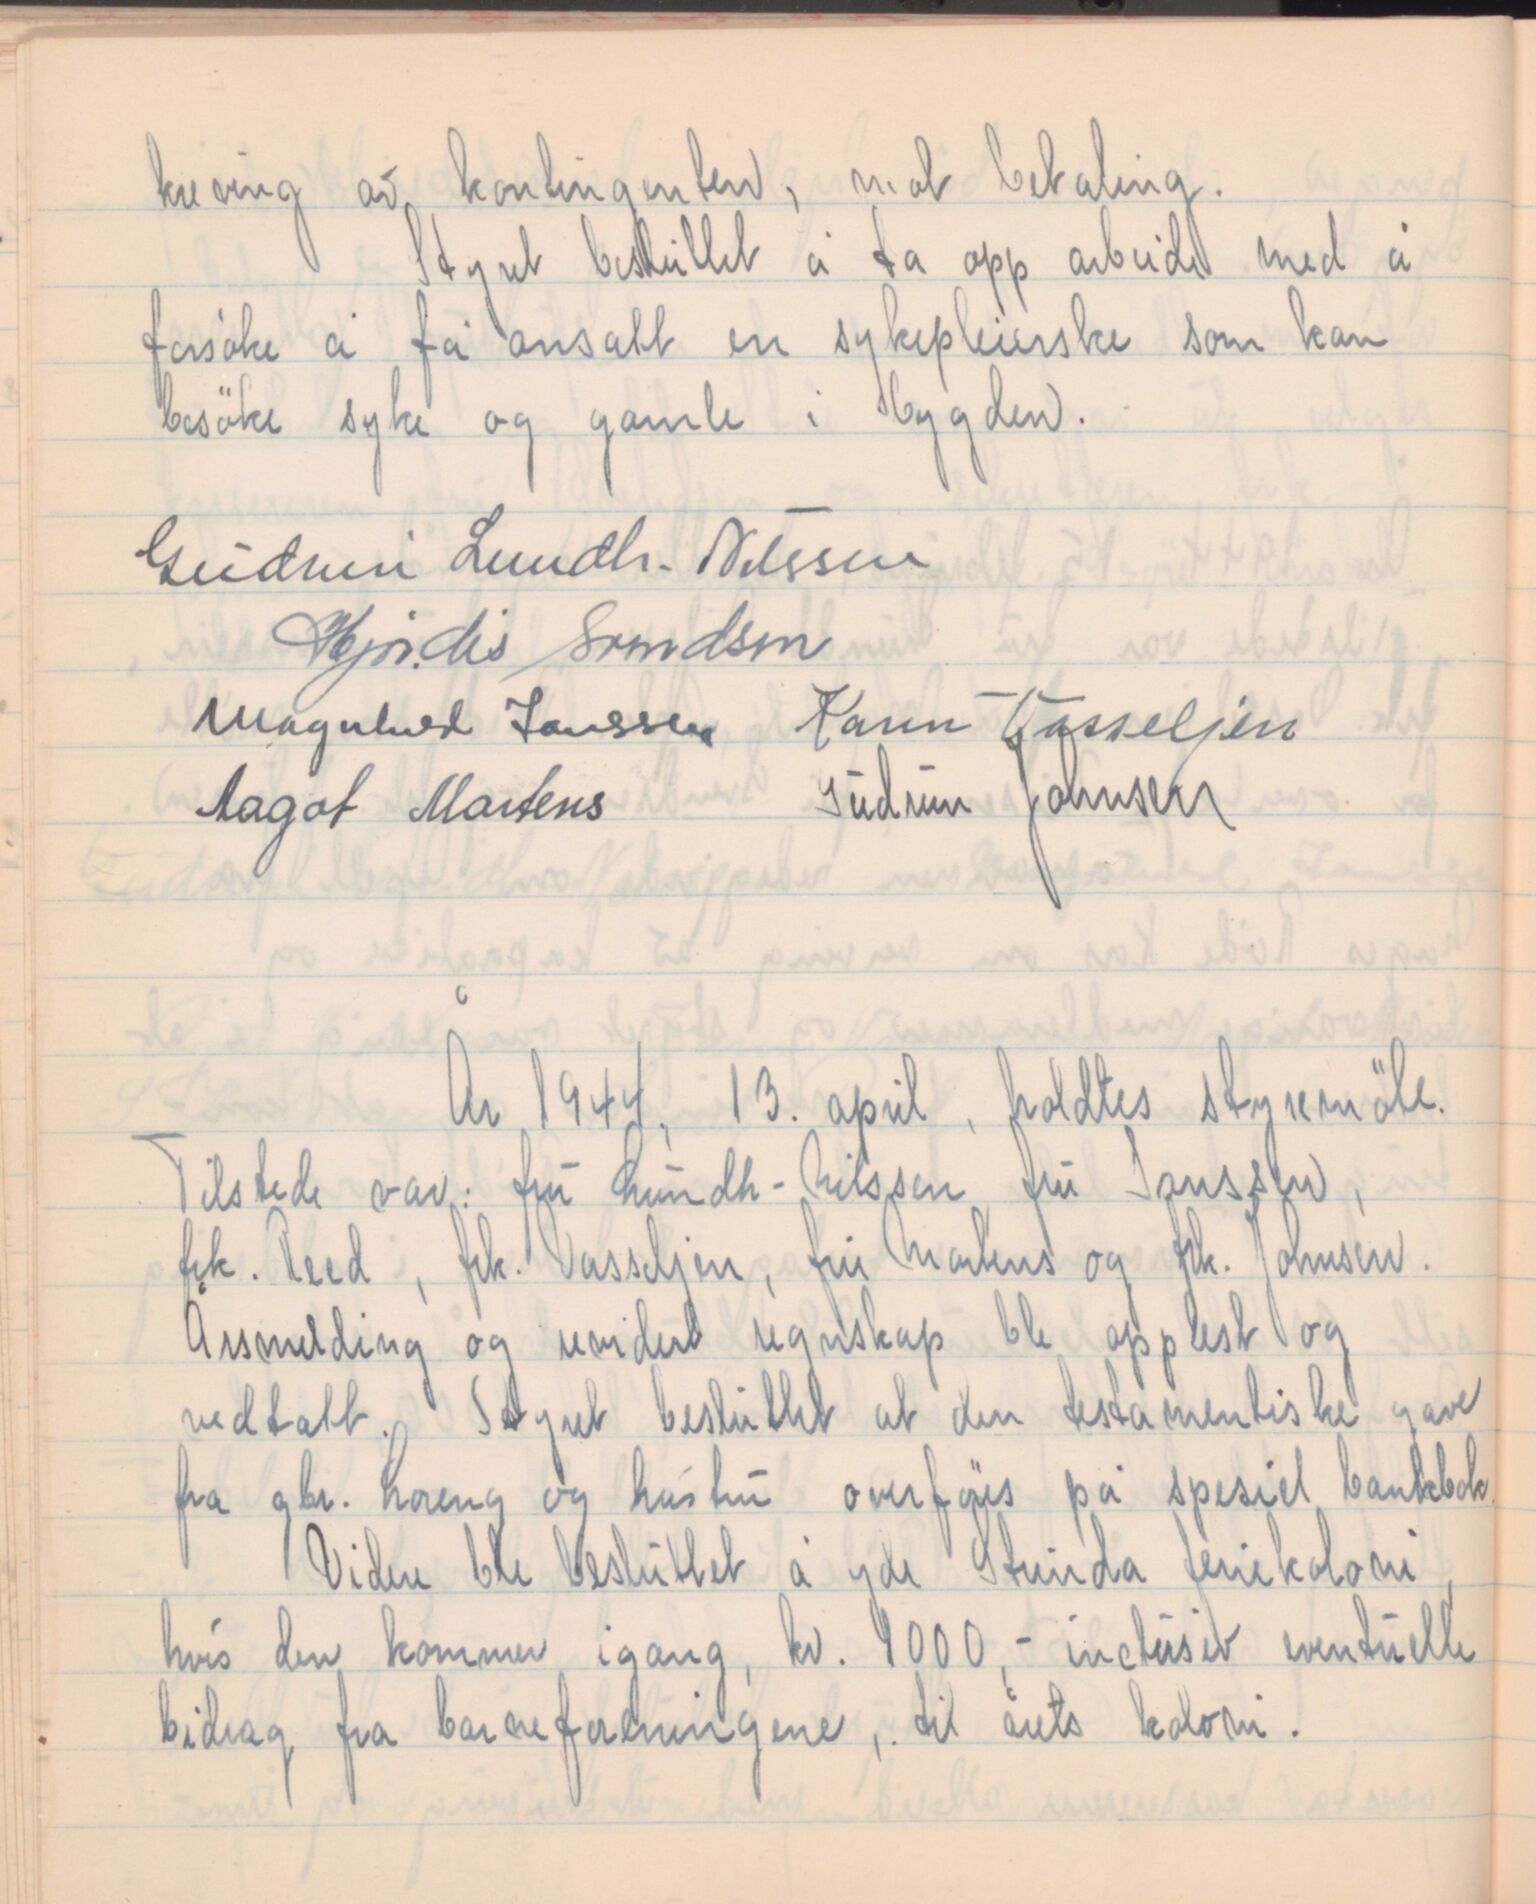 kreving av kontingenten, mot betaling.
Styret besluttet å ta opp arbeide med å
forsöke å få ansatt en sykepleierske som kan
besöke syke og gamle i bygden.
Gudrun Lundh-Nilssen
Hjördis Svendsen
Magnhild Janssen Karin Vasseljen
Aagot Martens Gudrun Johnsen
År 1944, 13. april, holdtes styremöte.
Tilstede var: fru Lundh-Nilssen, fru Janssen,
frk. Reed, frk. Vasseljen, fru Martens og frk. Johnsen.
Årsmelding og revidert regnskap ble opplest og
vedtatt. Styret besluttet at den testamentiske gave
fra gbr. Loreng og hustru overföres på spesiel bankbok
Videre ble besluttet å yde Strinda feriekoloni,
hvis den kommer igang, kr. 1000,- inclusiv eventuelle
bidrag fra barneforeningene, til årets koloni.